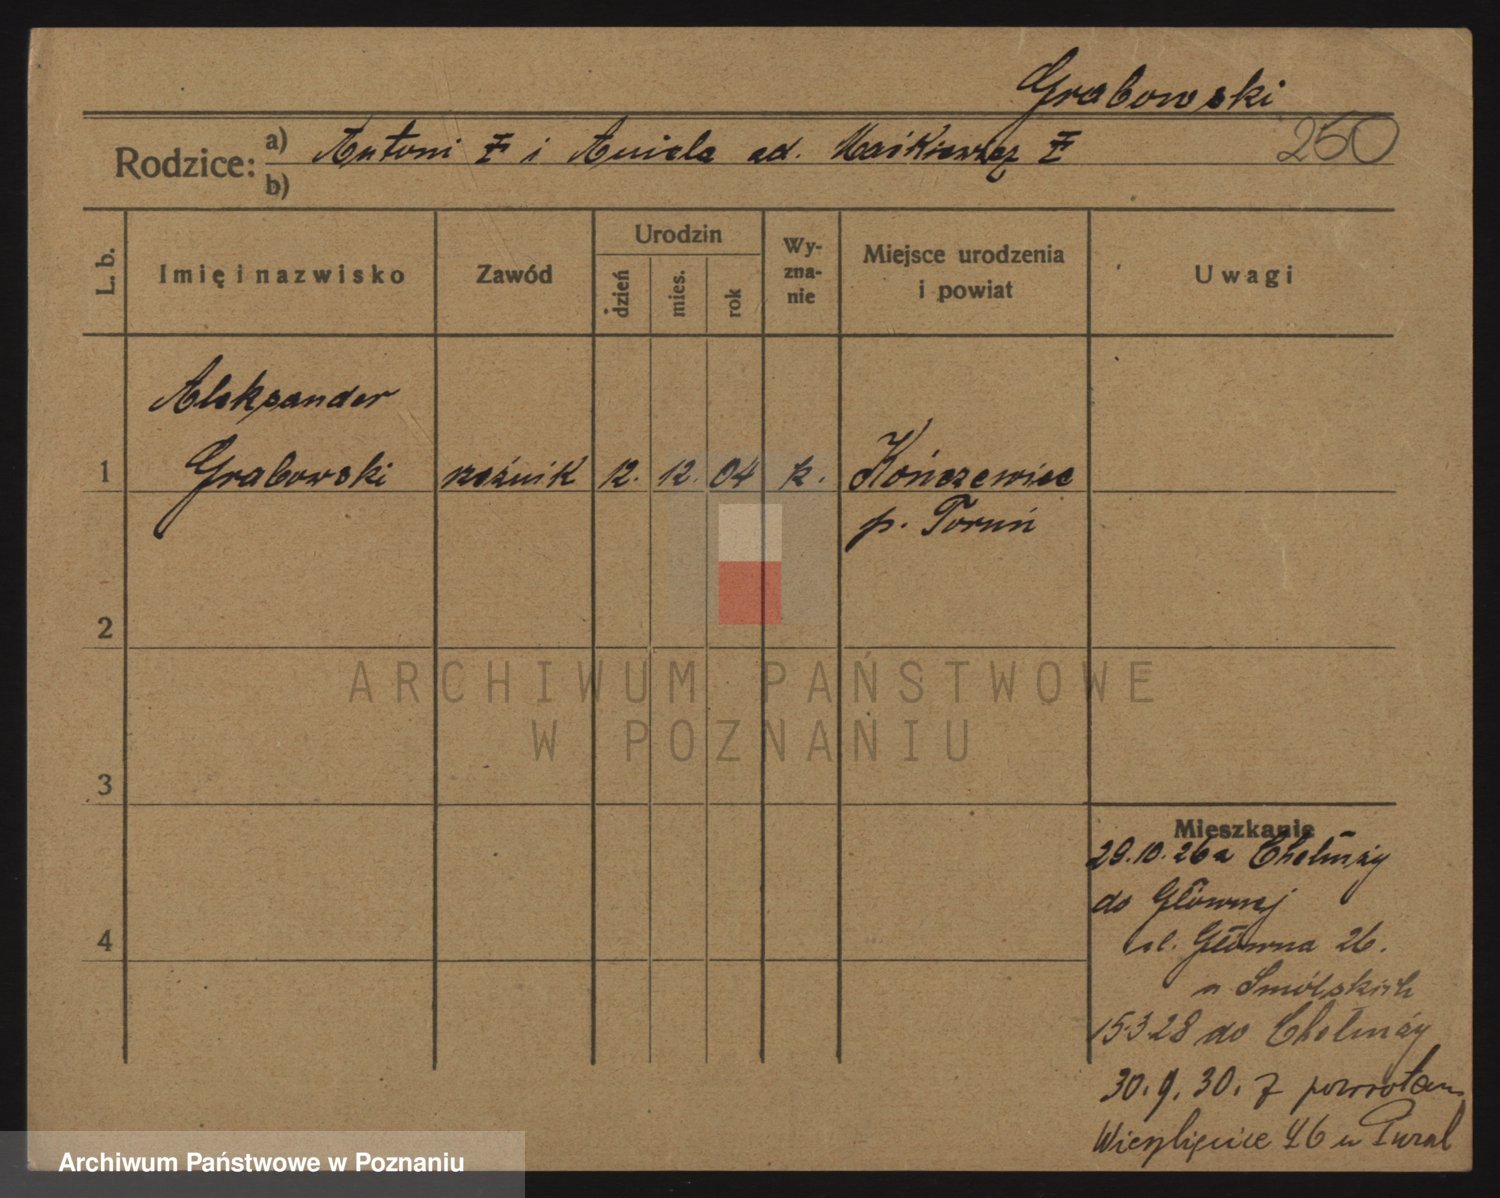 Grabowski
Rodzice: a) Antoni i Aniela
250
b)
L. b.
Imię i nazwisko
Zawód
Urodzin
dzień
mies.
rok
Wy-
zna-
nie
Miejsce urodzenia
i powiat
Uwagi
Aleksander
1 Grabowski rzeźnik 12. 12. 04 k. Kończewice
p. Toruń
2
3
4
Mieszkanie
29.10.26 z Chełmży
do Głównej
ul. Główna 26.
u Smólskich
15.3.28 do Chełmży
30. 9. 30. z powrotem
46 u
ARCHIWUM PAŃSTWOWE
W POZNANIU
Archiwum Państwowe w Poznaniu